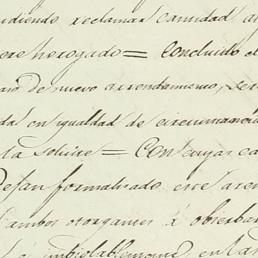 udiendo reclamar cantidad al
derechoroyado = Concluido el
de nuevo arrendamiento, se
da en igualdad de circunstancia
la solicite = Con cuyas ca
Dejan formalizado este aren
ambos otorgantes á observar
inviolablemente, en